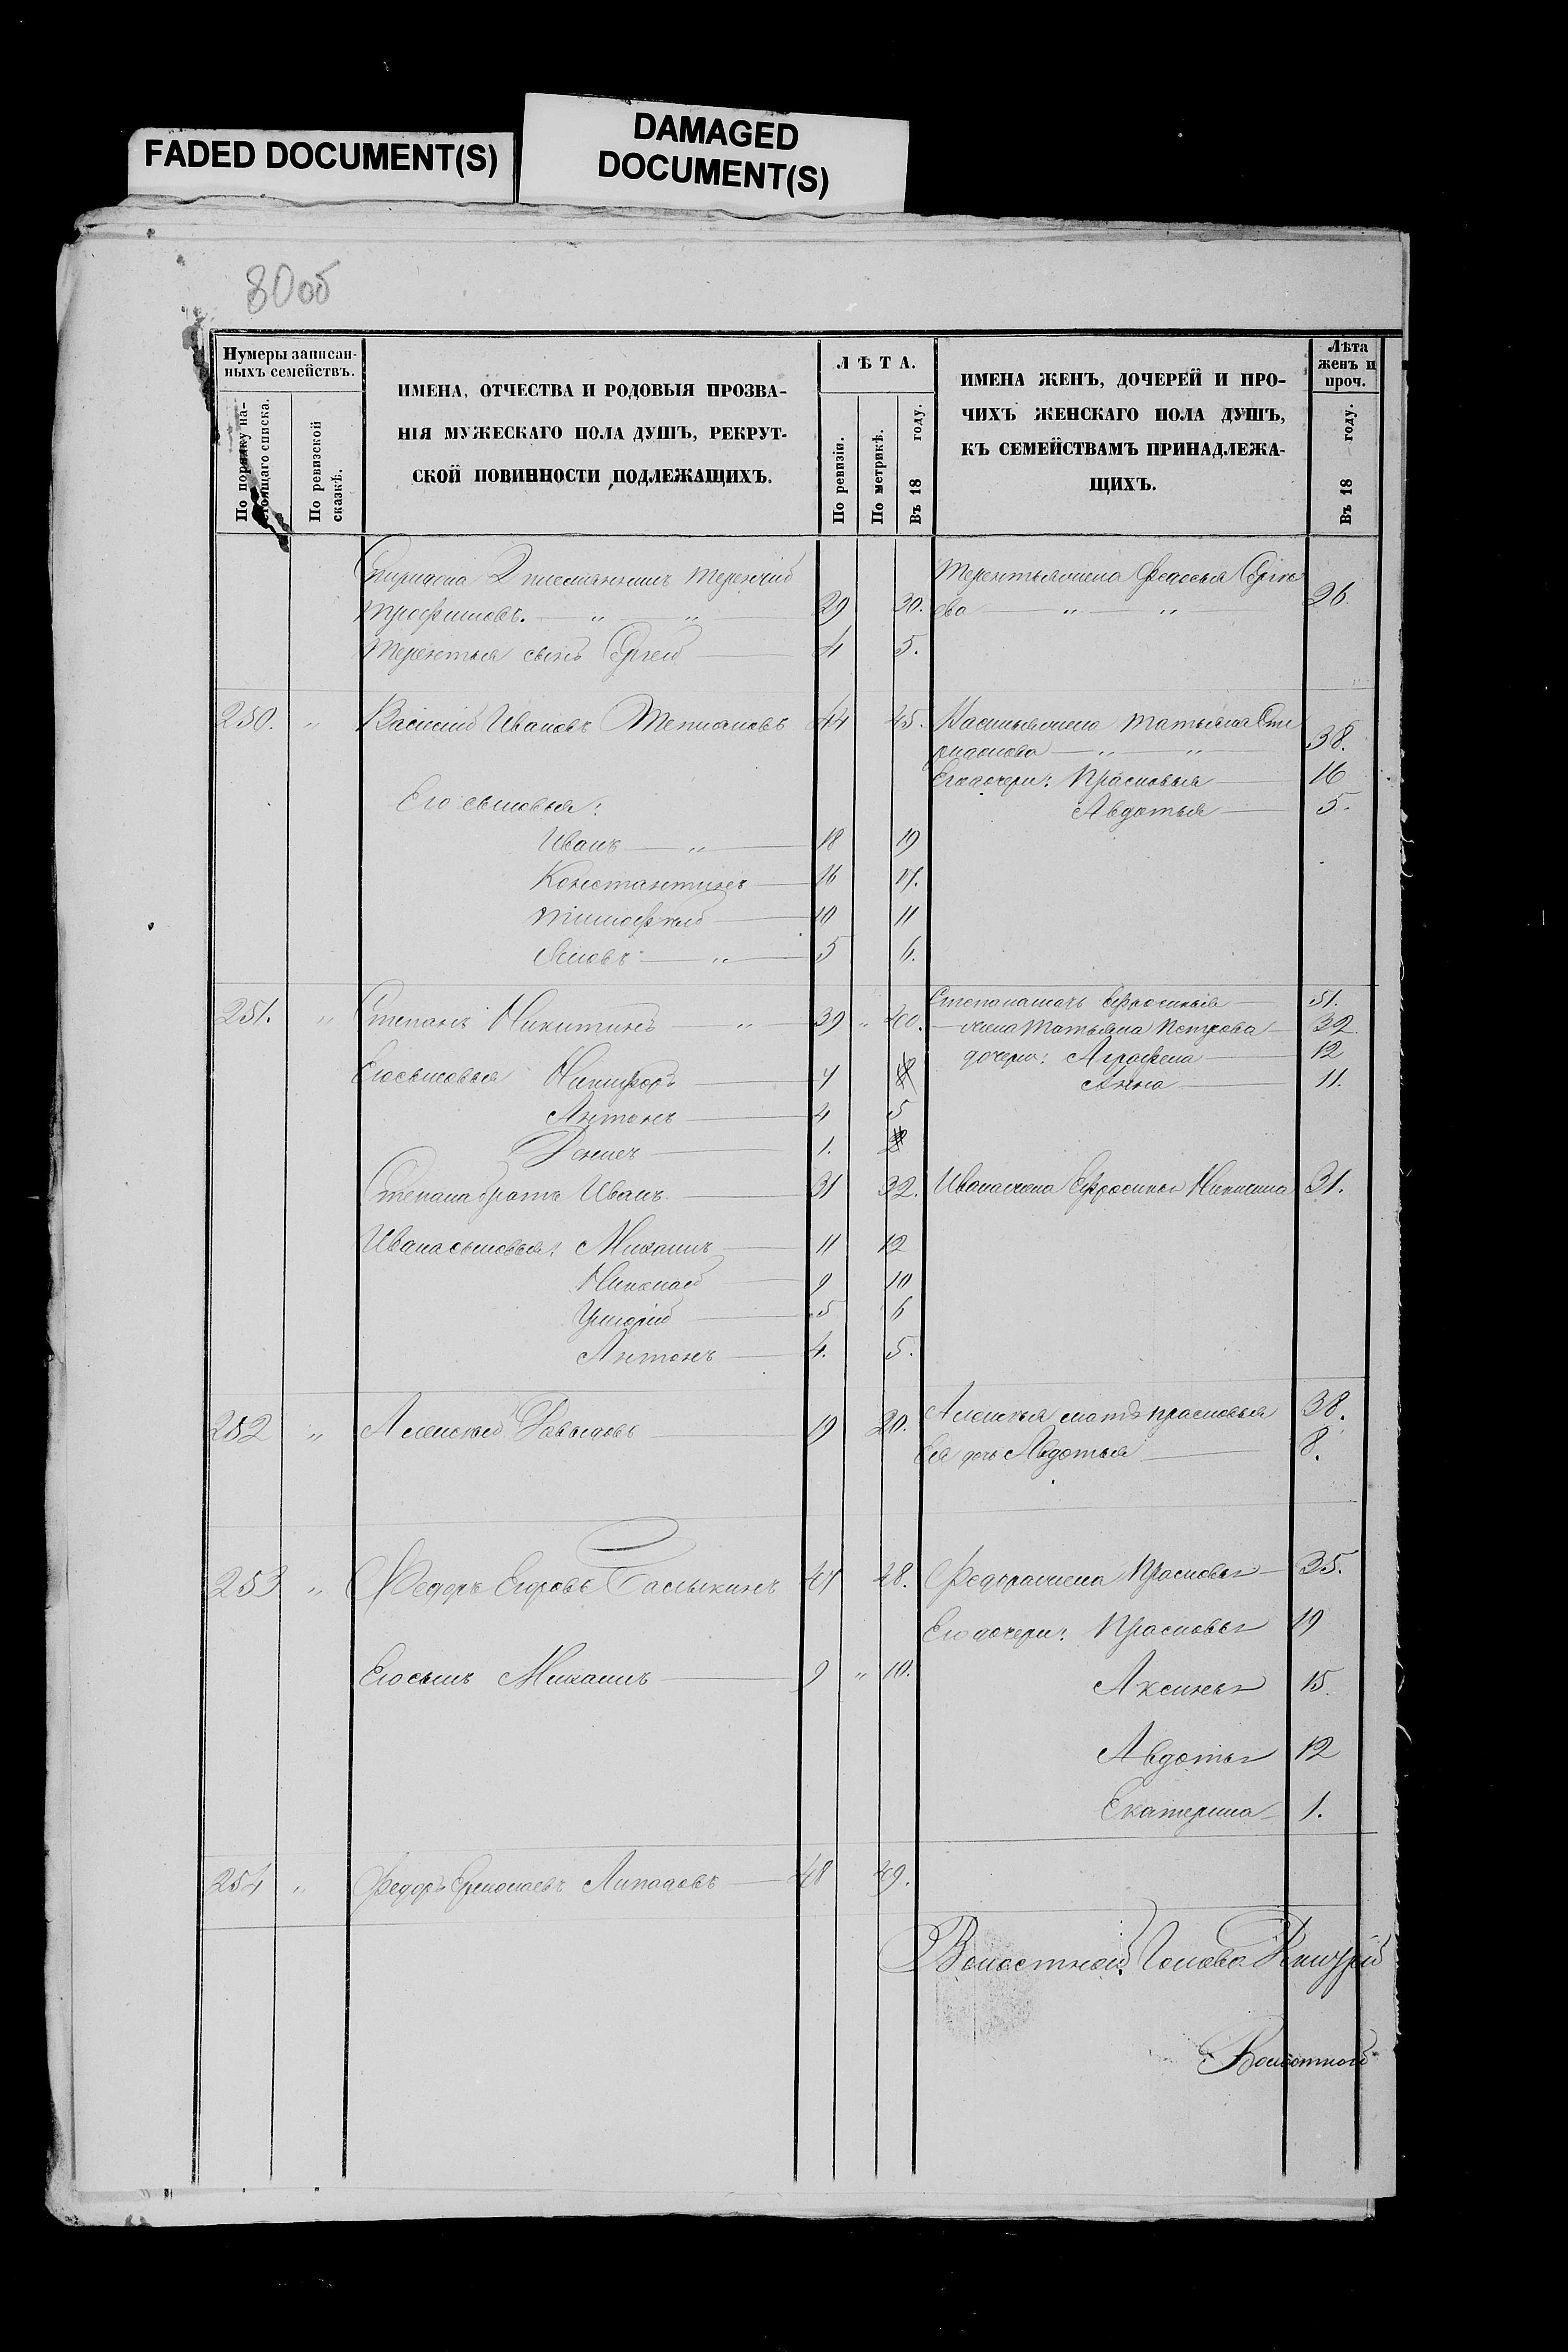 FADED DOCUMENT(S)
DAMAGED
DOCUMENT(S)
80об
Нумеры записан-
ныхъ семействъ.
По порядку на-
стоящаго списка.
По ревизской
сказкѣ.
ИМЕНА, ОТЧЕСТВА И РОДОВЫЯ ПРОЗВА-
НІЯ МУЖЕСКАГО ПОЛА ДУШЪ, РЕКРУТ-
СКОЙ ПОВИННОСТИ ПОДЛЕЖАЩИХЪ.
ЛѢТА.
По ревизіи.
По метрикѣ.
Въ 18 году.
ИМЕНА ЖЕНЪ, ДОЧЕРЕЙ И ПРО-
ЧИХЪ ЖЕНСКАГО ПОЛА ДУШЪ,
КЪ СЕМЕЙСТВАМЪ ПРИНАДЛЕЖА-
ЩИХЪ.
Лѣта
женъ и
проч.
Въ 18 году.
2 племянникъ Терентій Терентья жена Федосья Сергѣ
Трофимовъ. — „ — „ — 29 30. ева — „ — „ — 26.
Терентья сынъ Сергей — 4 5.
250. „ Василій Ивановъ 44 45. Василья жена Татьяна Сте
панова — „ — „ — 38.
Его дочери: Прасковья — 16
Его сыновья: Авдотья — 5.
Иванъ — „ — 18 19
Константинъ — 16 17.
Тимофей — 10 11
Яковъ — „ — 5 6.
251. „ Степанъ Никитинъ — „ — 39 „ 40. Степана мать Ефросинія — 51.
— жена Татьяна Петрова — 32.
дочери: Аграфена — 12
Его сыновья Никифоръ — 7 Анна — 11.
Антонъ — 4 5
1.
Степана братъ Иванъ — 31 32. Ивана жена Ефросинья 31.
Ивана сыновья: Михаилъ — 11 12
Николай — 9 10
Григорій — 5 6
Антонъ — 4. 5.
252 „ Алексей Давыдовъ — 19 20. Алексѣя мать Прасковья 38.
Ея дочь Авдотья — 8.
253 „ Федоръ Егоровъ 47 48. Федора жена Прасковья — 35.
Его дочери: Прасковья 19
Его сынъ Михаилъ — 9 „ 10. Аксинья 15.
Авдотья 12
Екатерина — 1.
254 „ Федоръ Ермолаевъ — 48 49.
Волостной Голова
Волостной